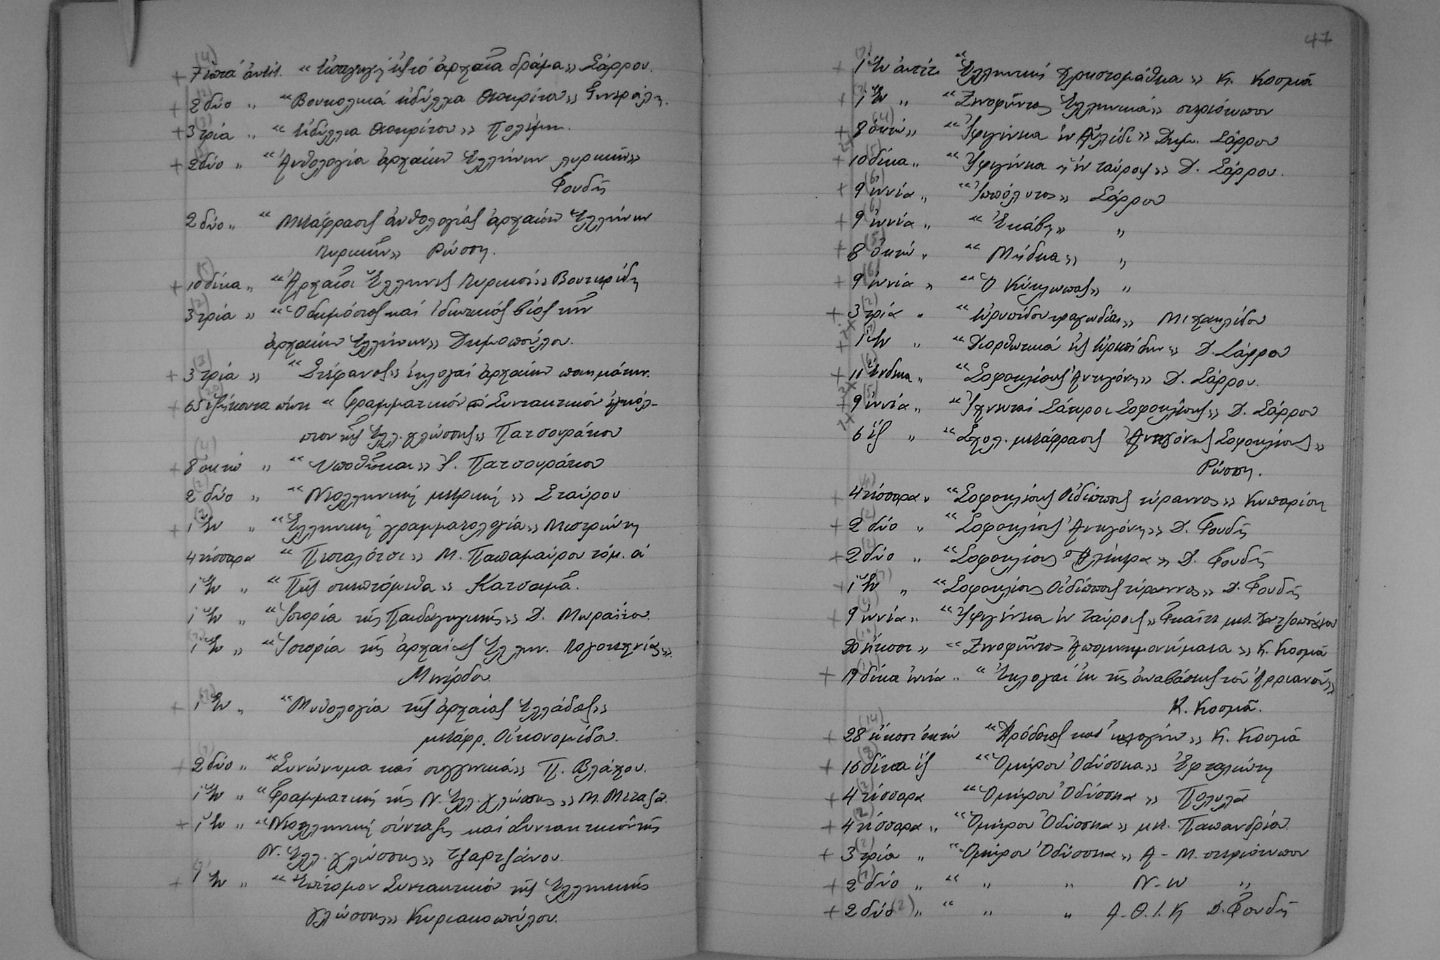 + 7 ἑπτά ἀντίτ. “Εἰσαγωγή εἰς τό ἀρχαῖα δράμα„ Σάρρου.
+ 2 δύο „ “Βουκολικά εἰδύλλια Θεοκρίτου„
+ 3 τρία „ “εἰδύλλια Θεοκρίτου„ Πολέμη.
+ 2 δύο „ “Ἀνθολογία ἀρχαίων Ἑλλήνων λυρικῶν„
Φουδῆ
2 δύο „ “Μετάφρασις ἀνθολογίας ἀρχαίων Ἑλλήνων
λυρικῶν„ Ρώσση.
+ 10 δέκα „ “Ἀρχαῖοι Ἕλληνες λυρικοί„ Βουτιερίδη
3 τρία „ “Ὁ δημόσιος καί ἰδιωτικός βίος τῶν
ἀρχαίων Ἑλλήνων„ Δημοπούλου.
+ 3 τρία „ “Στέφανος„ ἐκλογαί ἀρχαίων ποιημάτων.
+ 65 ἑξήκοντα πέντε “Γραμματικόν καί Συντακτικόν ἐγκόλ-
πιον τῆς Ἑλλ. γλώσσης„ Πατσουράκου
+ 8 ὀκτώ „ “Ὑποθῆκαι„ Γ. Πατσουράκου
2 δύο „ “Νεοελληνική μετρική„ Σταύρου
+ 1 ἕν „ “Ἑλληνική γραμματολογία„ Μιστριώτη
4 τέσσαρα “Πεσταλότσι„ Μ. Παπαμαύρου τόμ. α΄
1 ἕν „ “Πῶς σκεπτόμεθα„ Κατσαμᾶ.
1 ἕν „ “Ἱστορία τῆς Παιδαγωγικῆς„ Δ. Μωραΐτου.
+ 1 ἕν „ “Ἱστορία τῆς ἀρχαίας Ἑλλην. λογοτεχνίας„
+ 1 ἕν „ “Μυθολογία τῆς ἀρχαίας Ἑλλάδος„
μετάφρ. Οἰκονομίδου.
+ 2 δύο „ “Συνώνυμα καί συγγενικά„ Π. Βλάχου.
1 ἕν „ “Γραμματική τῆς Ν. Ἑλλ. γλώσσης„ Μ. Μεταξᾶ
+ 1 ἕν „ “Νεοελληνική σύνταξις καί Συντακτικόν τῆς
Ν. Ἑλλ. γλώσσης„ Τζαρτζάνου.
+ 1 ἕν „ “Ἐπίτομον Συντακτικόν τῆς Ἑλληνικῆς
γλώσσης„ Κυριακοπούλου.
47
+ 1 ἕν ἀντίτ. “Ἑλληνική Χρηστομάθεια„ Κ. Κοσμᾶ
+ 1 ἕν „ “Ξενοφῶντος Ἑλληνικά„ στερεότυπον
+ 8 ὀκτώ „ “Ἰφιγένεια ἐν Αὐλίδι„ Δημ. Σάρρου
+ 10 δέκα „ “Ἰφιγένεια ἡ ἐν ταύροις„ Δ. Σάρρου.
+ 9 ἐννέα „ “Ἱππόλυτος„ Σάρρου
+ 9 ἐννέα „ “Ἑκάβη„ „
+ 8 ὀκτώ „ “Μήδεια„ „
+ 9 ἐννέα „ “Ὁ Κύκλωπας„ „
+ 3 τρία „ “Εὐριπίδου τραγωδίαι„ Μιχαηλίδου
+ 1 ἕν „ “Διορθωτικά εἰς Εὐριπίδην„ Δ. Σάρρου
+ 11 ἕνδεκα „ “Σοφοκλέους Ἀντιγόνη„ Δ. Σάρρου.
+ 9 ἐννέα „ “Ἰχνευταί Σάτυροι Σοφοκλέους„ Δ. Σάρρου
6 ἕξ „ “Σχολ. μετάφρασις Ἀντιγόνης Σοφοκλέους„
Ρώσση.
+ 4 τέσσαρα „ “Σοφοκλέους Οἰδίπους τύραννος„ Κυπαρίσση
+ 2 δύο „ “Σοφοκλέους Ἀντιγόνη„ Δ. Φουδῆ
+ 2 δύο „ “Σοφοκλέους Ἠλέκτρα„ Δ. Φουδῆ
+ 1 ἕν „ “Σοφοκλέους Οἰδίπους τύραννος„ Δ. Φουδῆ
+ 9 ἐννέα „ “Ἰφιγένεια ἐν Ταύροις„ Γκαῖτε μετ. Χατζοπούλου
20 εἴκοσι „ “Ξενοφῶντος Ἀπομνημονεύματα„ Κ. Κοσμᾶ
+ 19 δέκα ἐννέα „ “Ἐκλογαί ἐκ τῆς ἀναβάσεως τοῦ Ἀρριανοῦ„
Κ. Κοσμᾶ.
+ 28 εἴκοσι ὀκτώ “Ἡρόδοτος κατ’ ἐκλογήν„ Κ. Κοσμᾶ
+ 16 δέκα ἕξ “Ὁμήρου Ὀδύσσεια„ Ἐφταλιώτη
+ 4 τέσσαρα “Ὁμήρου Ὀδύσσεια„ Πολυλᾶ
+ 4 τέσσαρα „ “Ὁμήρου Ὀδύσσεια„ μετ. Παπανδρέου
+ 3 τρία „ “Ὁμήρου Ὀδύσσεια„ Α - Μ. στερεότυπον
+ 2 δύο „ “ „ „ Ν-ω „
+ 2 δύο (2) „ “ „ „ Α.Θ.Ι.Κ Δ. Φουδῆ